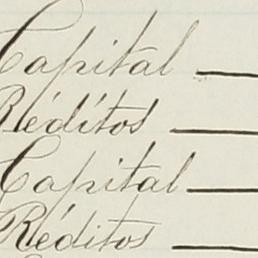 Capital —
Réditos —
Capital —
Réditos —